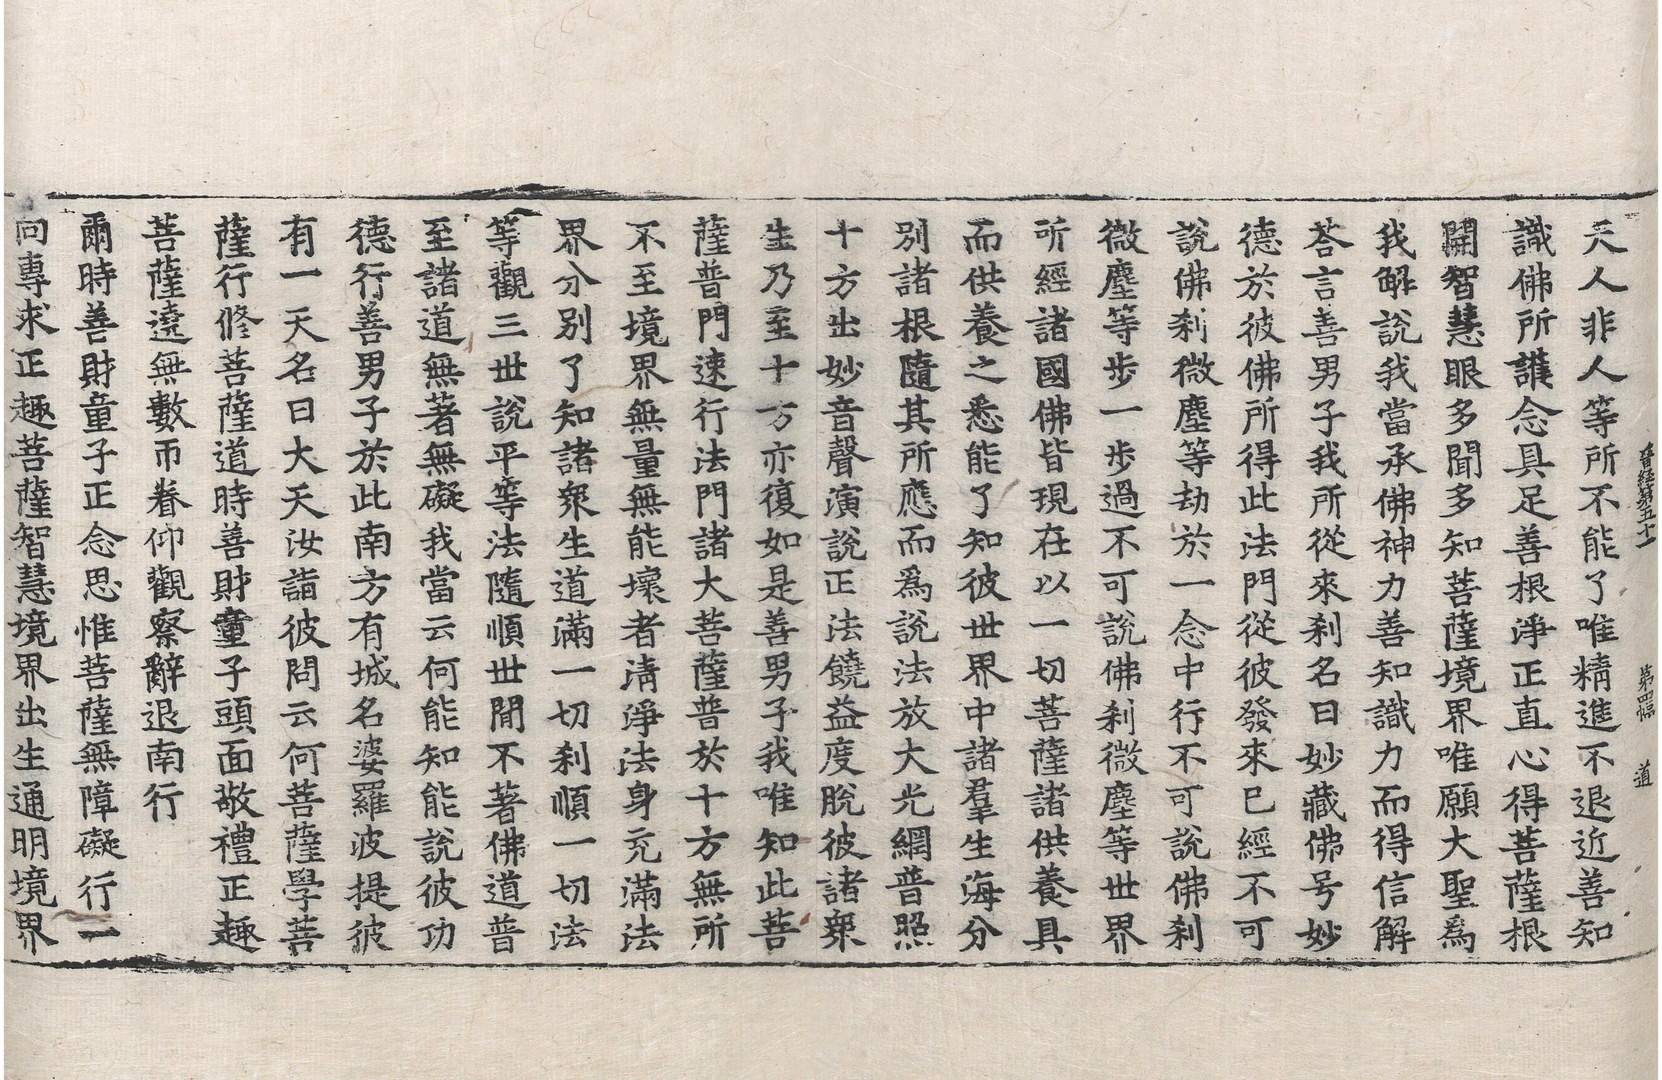 晉經第五十一 第四幅 道
天人非人等所不能了唯精進不退近善知
識佛所護念具足善根淨正直心得菩薩根
開智慧眼多聞多知菩薩境界唯願大聖爲
我解說我當承佛神力善知識力而得信解
荅言善男子我所從來刹名曰妙藏佛号妙
德於彼佛所得此法門從彼發來已經不可
說佛刹微塵等劫於一念中行不可說佛刹
微塵等步一步過不可說佛刹微塵等世界
所經諸國佛皆現在以一切菩薩諸供養具
而供養之悉能了知彼世界中諸羣生海分
別諸根隨其所應而爲說法放大光網普照
十方出妙音聲演說正法饒益度脫彼諸衆
生乃至十方亦復如是善男子我唯知此菩
薩普門速行法門諸大菩薩普於十方無所
不至境界無量無能壞者淸淨法身充滿法
界分別了知諸衆生道滿一切刹順一切法
等觀三世說平等法隨順世閒不著佛道普
至諸道無著無礙我當云何能知能說彼功
德行善男子於此南方有城名婆羅波提彼
有一天名曰大天汝詣彼問云何菩薩學菩
薩行修菩薩道時善財童子頭面敬禮正趣
菩薩遶無數帀眷仰觀察辭退南行
爾時善財童子正念思惟菩薩無障礙行一
向專求正趣菩薩智慧境界出生通明境界